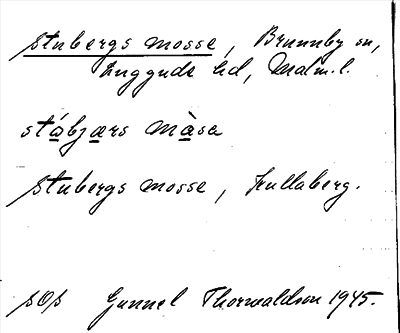 Stubergs mosse, Brunnby sn,
Luggude hd, Malm.l.
stábjærs màsa
Stubergs mosse, Kullaberg.
SOS Gunnel Thorwaldson 1945.